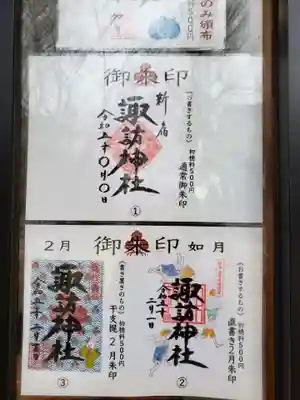 のみ頒布
500円
御朱印
新宿
諏訪神社
令和五年〇月〇日
《お書きするもの》初穂料500円
通常御朱印
①
2月 御朱印 如月
《直書きのもの》初穂料500円
直書き2月朱印
諏訪神社
②
《書き置きのもの》初穂料500円
干支梶2月朱印
諏訪神社
③